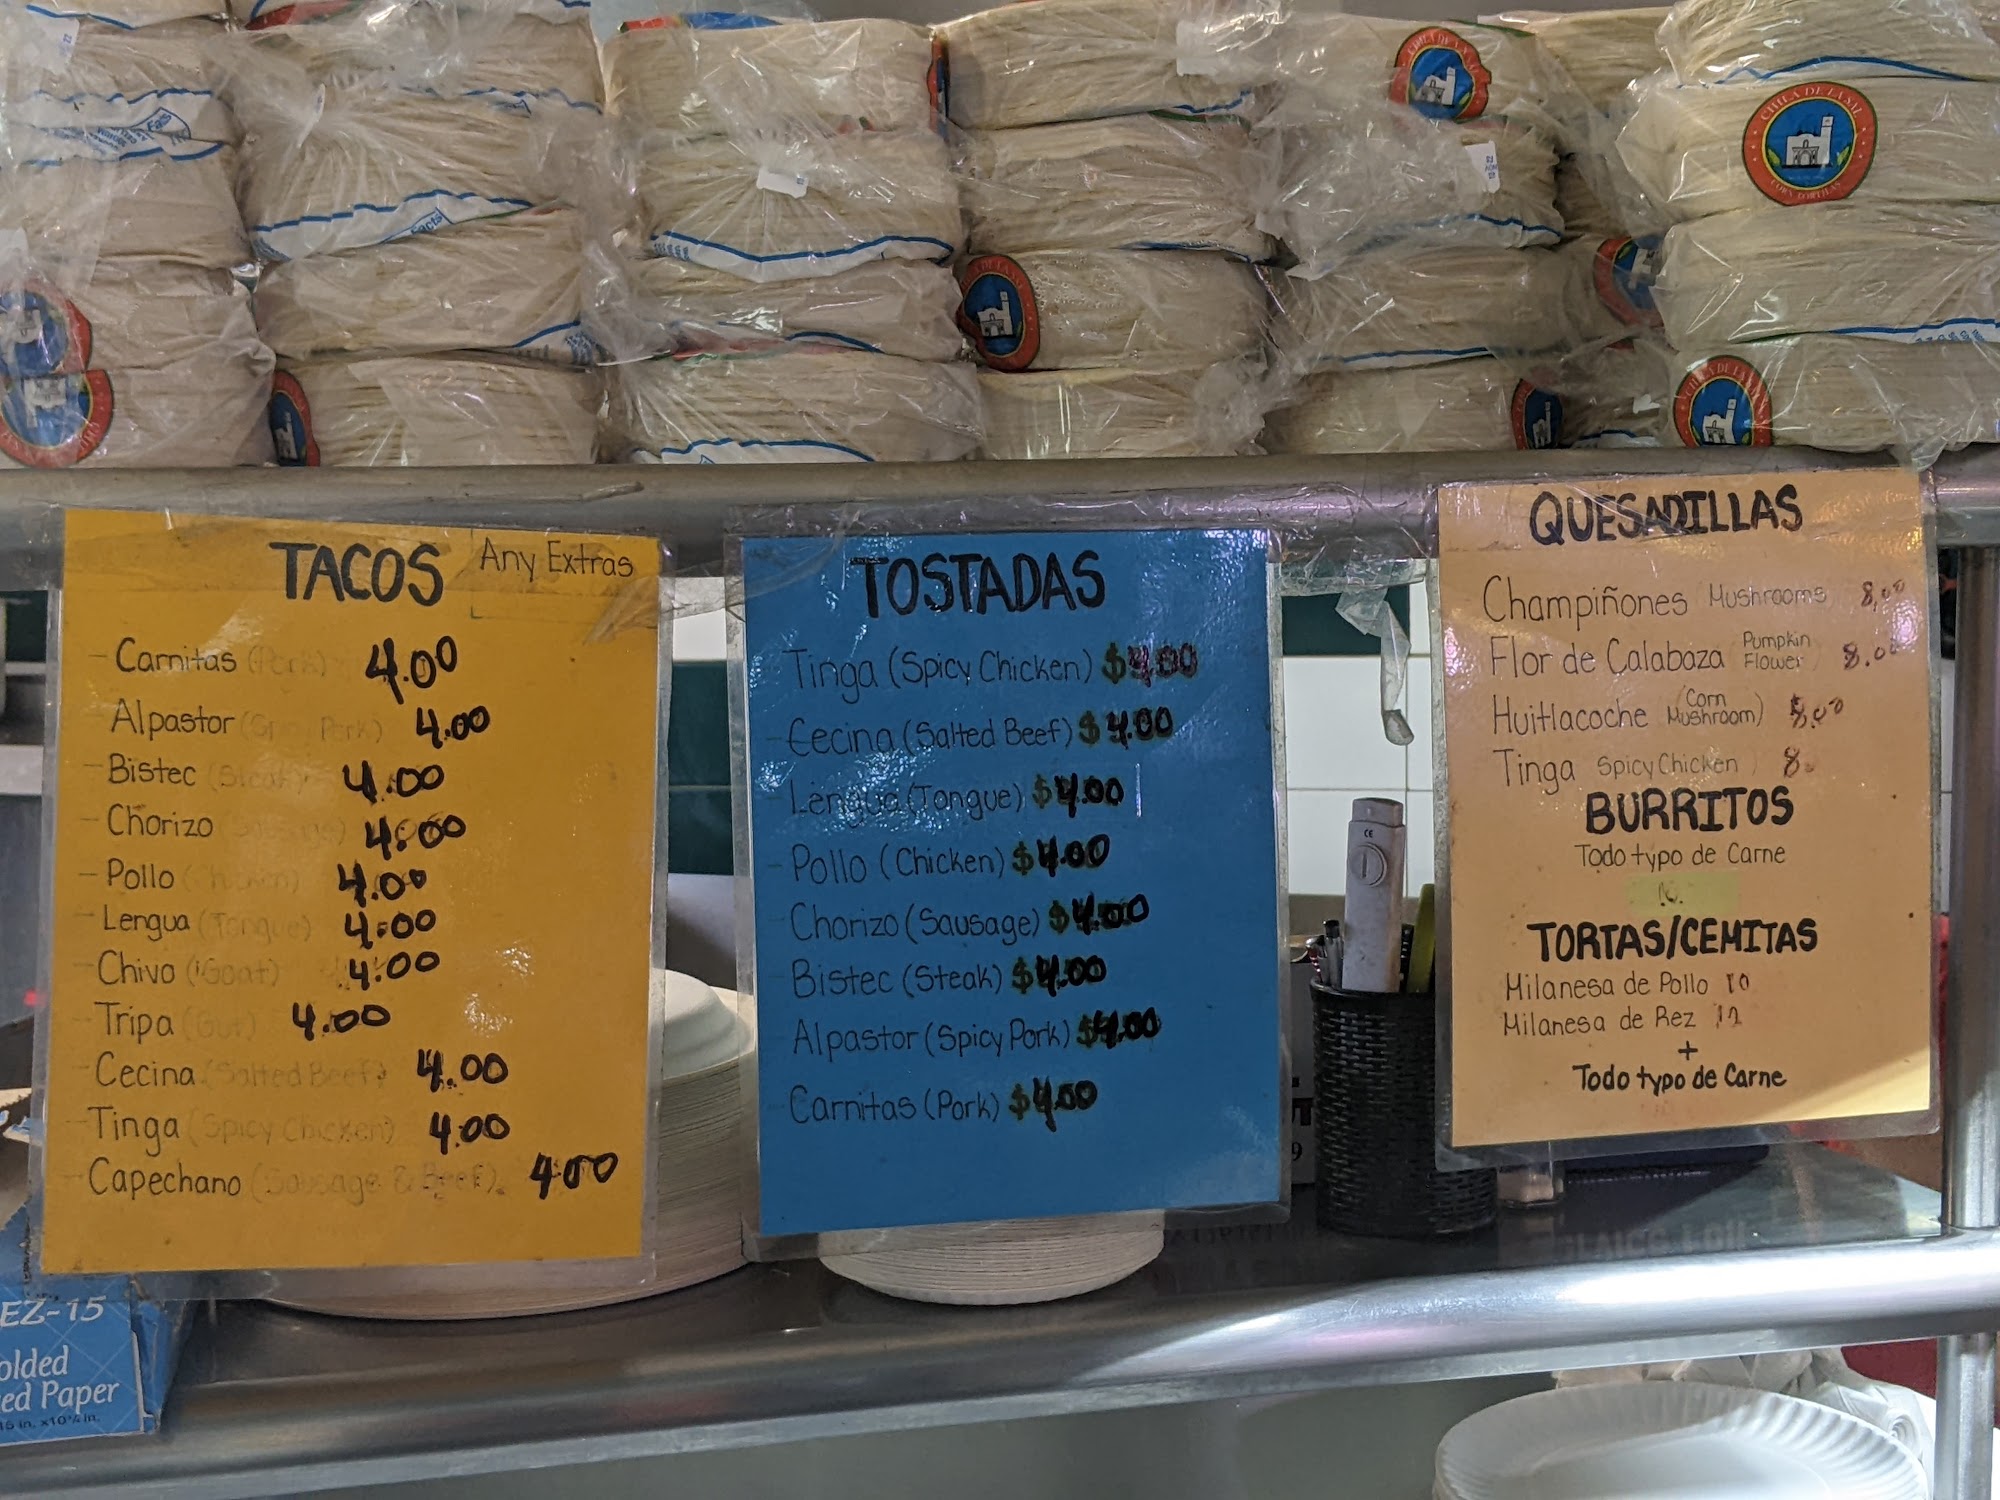 CHILA DE LA SAL
CORN TORTILLAS
TACOS
Any Extras
- Carnitas (Pork) 4.00
- Alpastor ( Pork) 4.00
- Bistec (Steak) 4.00
- Chorizo 4.00
- Pollo (Chicken) 4.00
- Lengua (Tongue) 4.00
- Chivo (Goat) 4.00
- Tripa (Gut) 4.00
- Cecina (Salted Beef) 4.00
- Tinga (Spicy Chicken) 4.00
- Capechano (Sausage & Beef). 4.00
TOSTADAS
- Tinga (Spicy Chicken) $4.00
- Cecina (Salted Beef) $4.00
- Lengua (Tongue) $4.00
- Pollo (Chicken) $4.00
- Chorizo (Sausage) $4.00
- Bistec (Steak) $4.00
- Alpastor (Spicy Pork) $4.00
- Carnitas (Pork) $4.00
QUESADILLAS
Champiñones (Mushrooms) 8.00
Flor de Calabaza (Pumpkin Flower) 8.00
Huitlacoche (Corn Mushroom) 8.00
Tinga (Spicy Chicken) 8.
BURRITOS
Todo typo de Carne
10.
TORTAS/CEMITAS
Milanesa de Pollo 10
Milanesa de Rez 12
+
Todo typo de Carne
EZ-15
olded
ed Paper